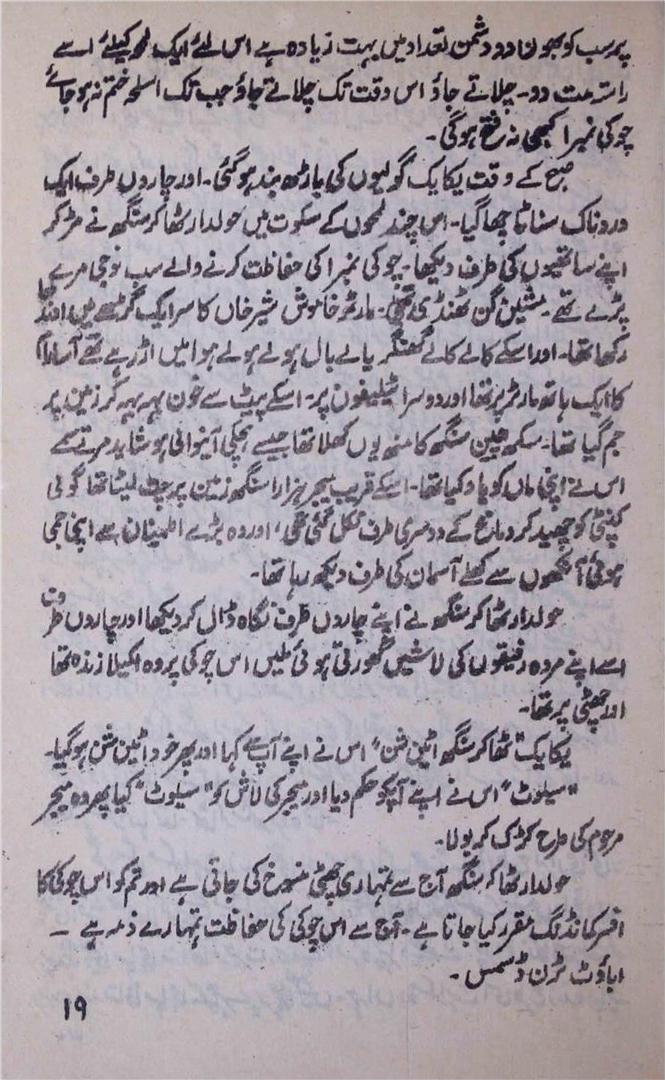 پر سب کو بھون دو دشمن تعداد میں بہت زیادہ ہے اس لئے ایک لمحہ کیلئے اسے
راستہ مت دو۔ چلاتے جاؤ اس وقت تک چلاتے جاؤ جب تک اسلحہ ختم نہ ہو جائے
چوکی نمبرا کبھی نہ فتح ہوگی۔
صبح کے وقت یکایک گولیوں کی باڑھ بند ہو گئی۔ اور چاروں طرف ایک
دردناک سناٹا چھا گیا۔ اس چند لمحوں کے سکوت میں حولدار ٹھاکر سنگھ نے مڑ کر
اپنے ساتھیوں کی طرف دیکھا۔ چوکی نمبرا کی حفاظت کرنے والے سب فوجی مرے
پڑے تھے۔ مشین گن ٹھنڈی تھی۔ مارٹر خاموش شیر خاں کا سر ایک گڑھے میں اوندھا
رکھا تھا۔ اور اسکے کالے کالے گھنگریالے بال ہولے ہولے ہوا میں اڑ رہے تھے آسارام
کا ایک ہاتھ مارٹر پر تھا اور دوسرا ٹیلیفون پر۔ اسکے پیٹ سے خون بہہ بہہ کر زمین پر
جم گیا تھا۔ سکھ چین سنگھ کا منھ یوں کھلا تھا جیسے ہچکی آنیوالی ہو شاید مرتے سمے
اس نے اپنی ماں کو یاد کیا تھا۔ اسکے قریب میجر ہزارا سنگھ زمین پر چت لیٹا تھا گولی
کنپٹی کو چھید کر دماغ کے دوسری طرف نکل گئی تھی، اور وہ بڑے اطمینان سے اپنی جمی
ہوئی آنکھوں سے کھلے آسمان کی طرف دیکھ رہا تھا۔
حولدار ٹھاکر سنگھ نے اپنے چاروں طرف نگاہ ڈال کر دیکھا اور چاروں طرف
اسے اپنے مردہ رفیقوں کی لاشیں گھورتی ہوئی ملیں اس چوکی پر وہ اکیلا زندہ تھا
اور چھٹی پر تھا۔
یکایک "ٹھاکر سنگھ اٹین شن" اس نے اپنے آپ سے کہا اور پھر خود اٹین شن ہو گیا۔
"سیلوٹ" اس نے اپنے آپکو حکم دیا اور میجر کی لاش کو "سیلوٹ" کیا پھر وہ میجر
مرحوم کی طرح کڑک کر بولا۔
حولدار ٹھاکر سنگھ آج سے تمہاری چھٹی منسوخ کی جاتی ہے اور تم کو اس چوکی کا
افسر کمانڈنگ مقرر کیا جاتا ہے۔ آج سے اس چوکی کی حفاظت تمہارے ذمہ ہے —
اباؤٹ ٹرن ڈسمس۔
۱۹